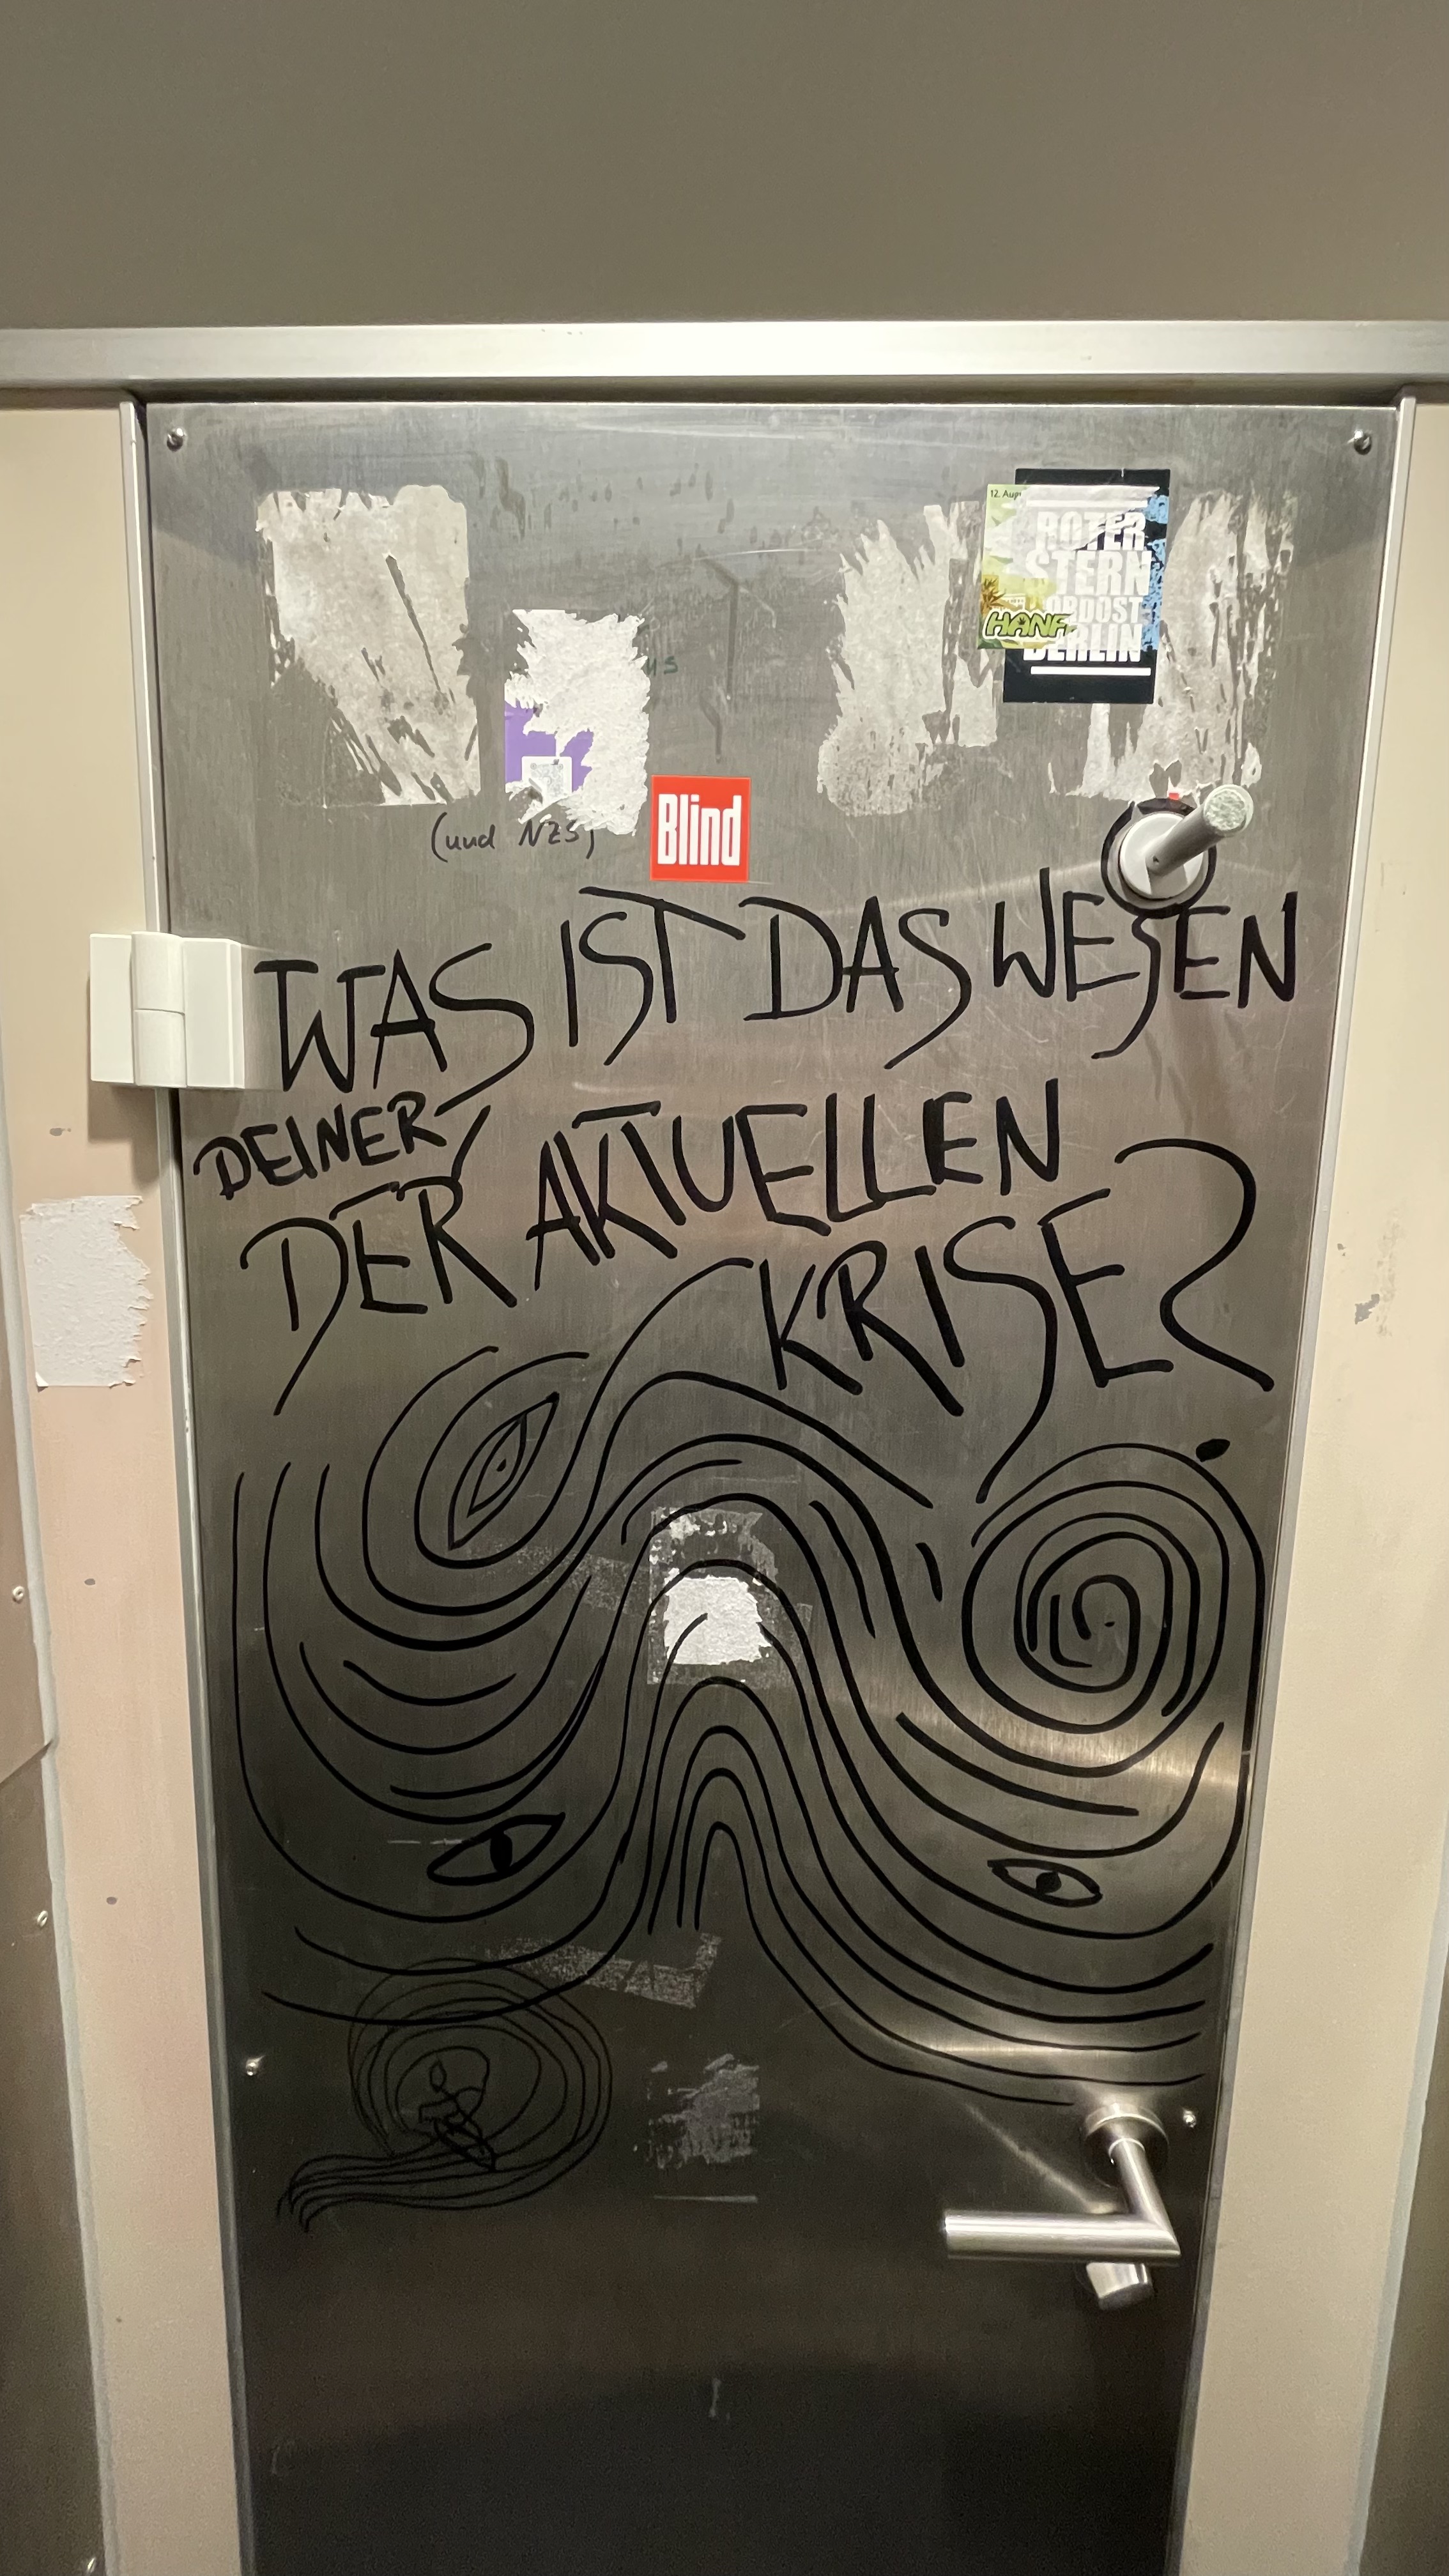 12. Aug
ROTER
STERN
NORDOST
HANF
BERLIN
(und NZS)
Blind
WAS IST DAS WESEN
DEINER
DER AKTUELLEN
KRISE?